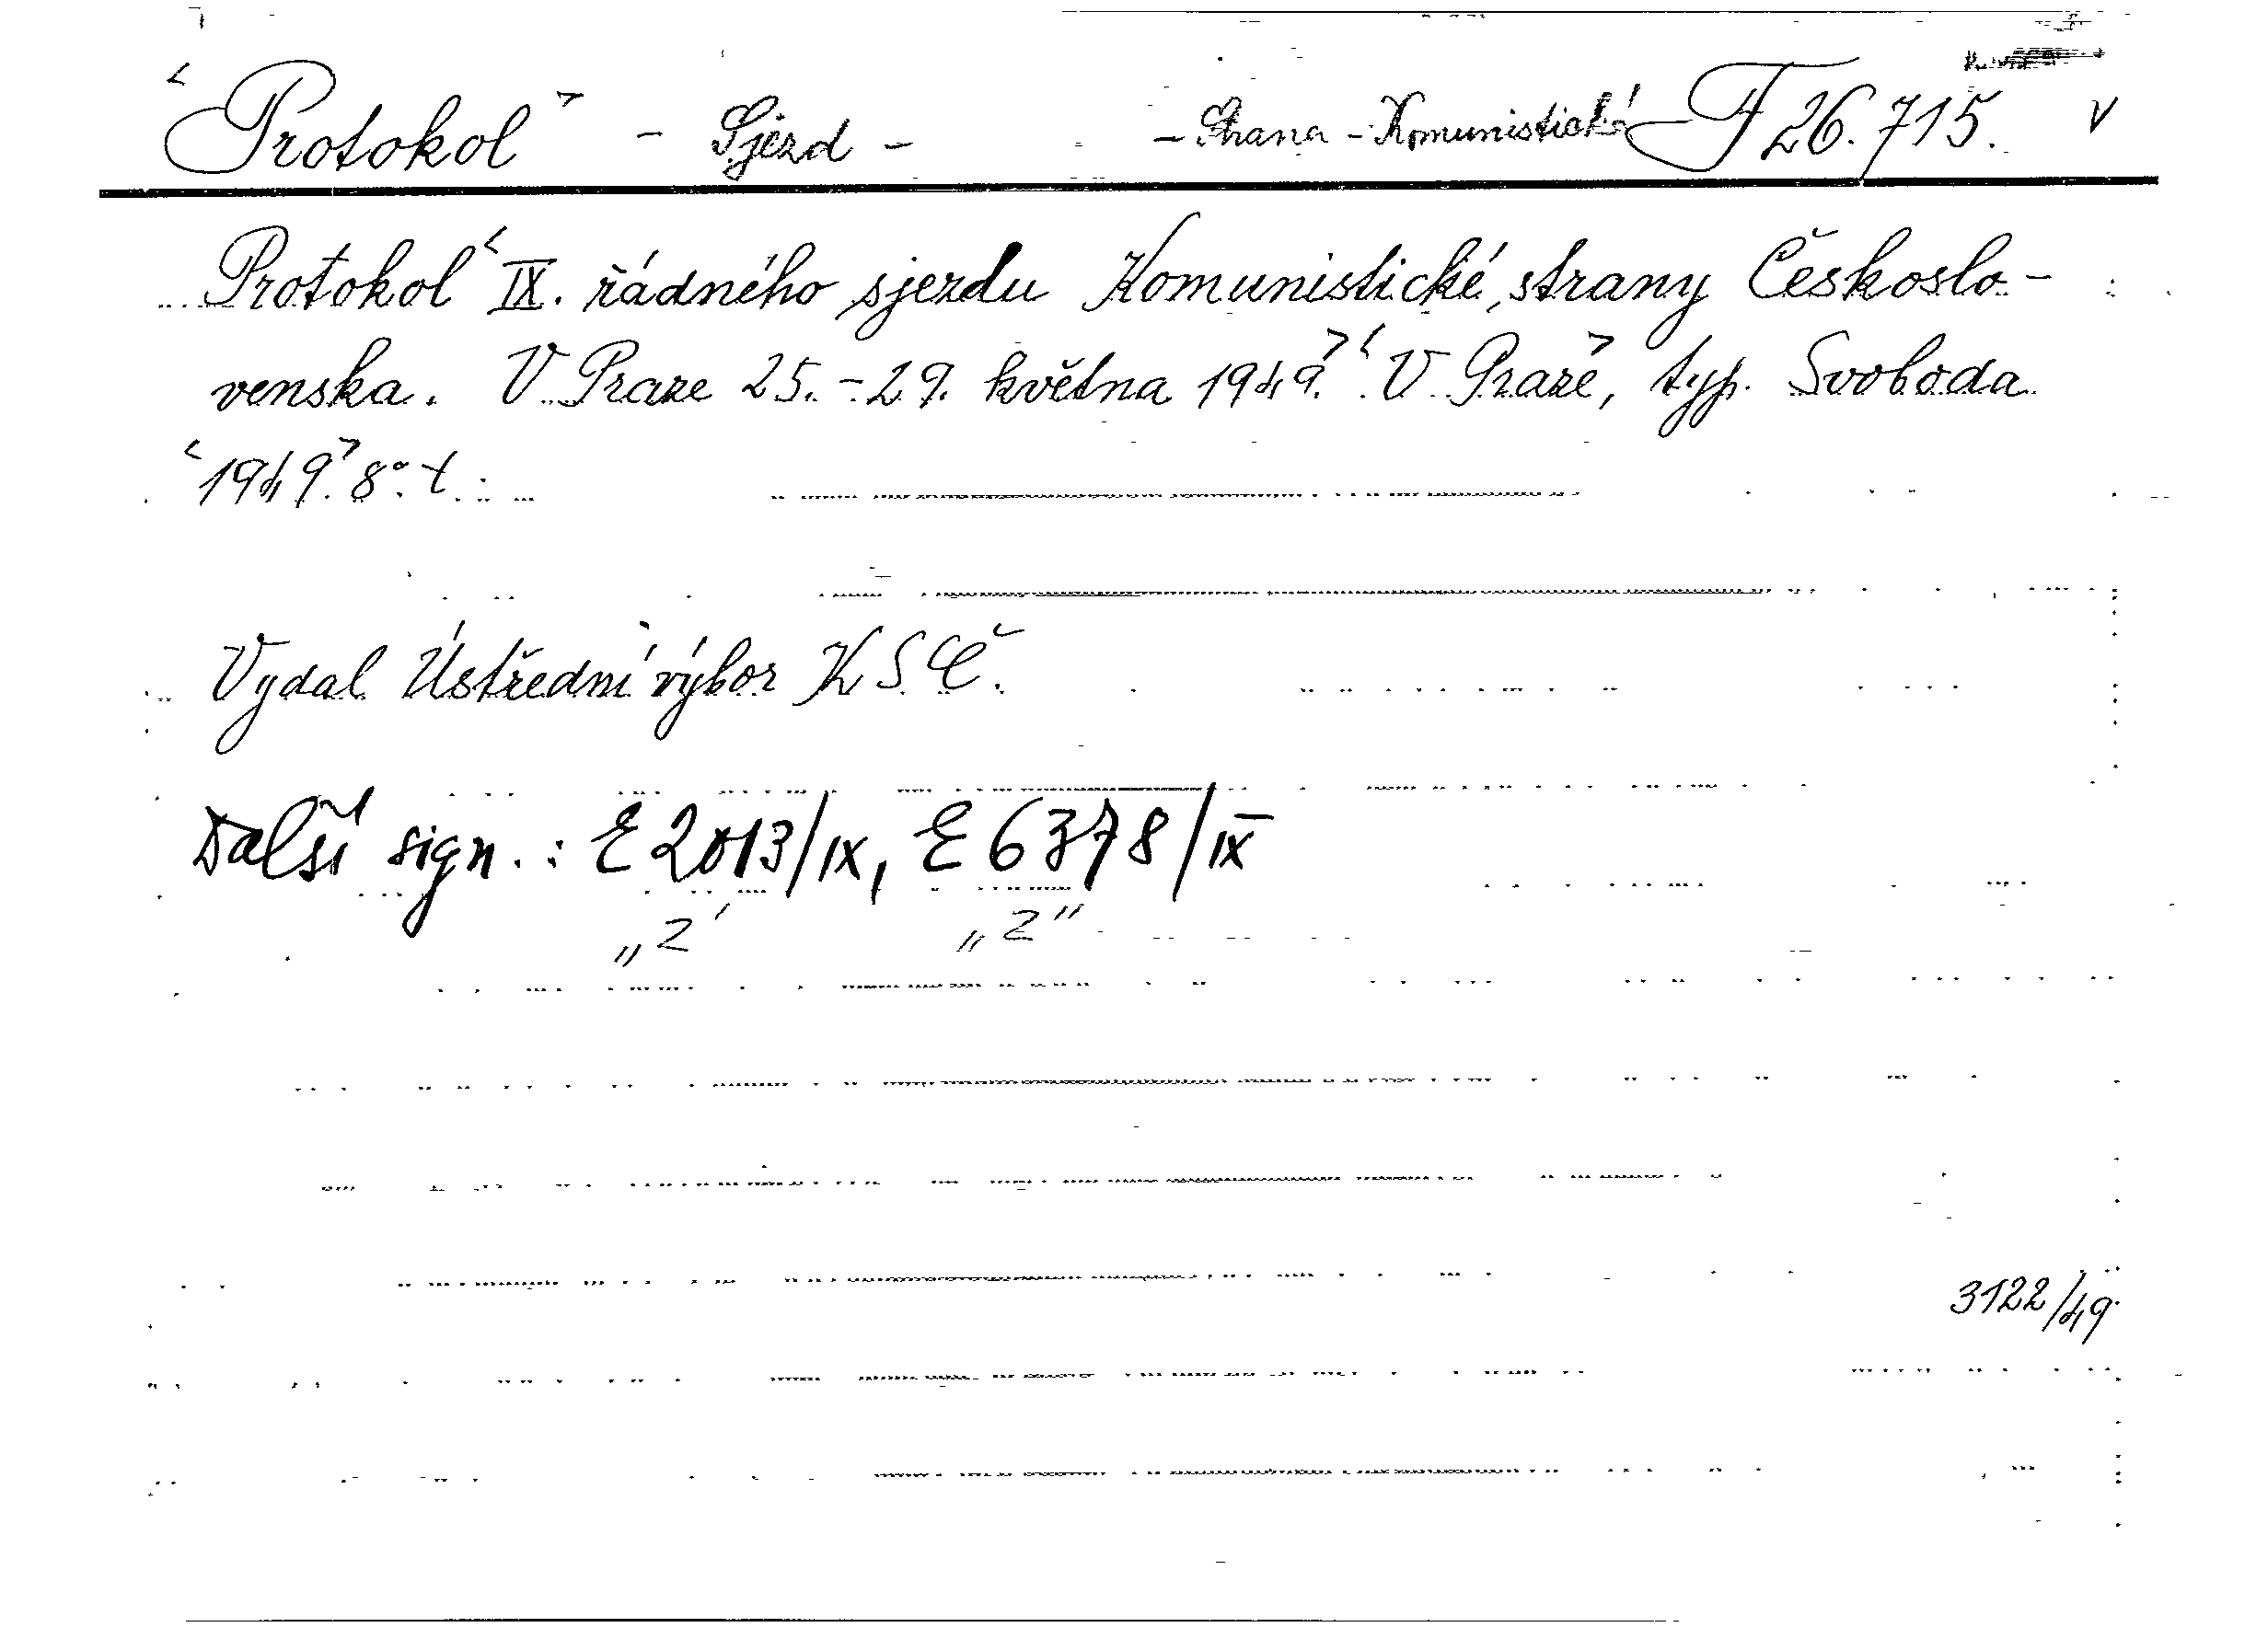 ‹Protokol› - Sjezd - - Strana - Komunistická F 26.715. v
Protokol ‹IX. řádného sjezdu Komunistické strany Českoslo-
venska. V Praze 25.-29. května 1949.› ‹V Praze›, typ. Svoboda
‹1949.› 8°. t.
Vydal Ústřední výbor KSČ.
Další sign.: E 2013/IX, E 6378/IX
„Z" „Z"
3122/49